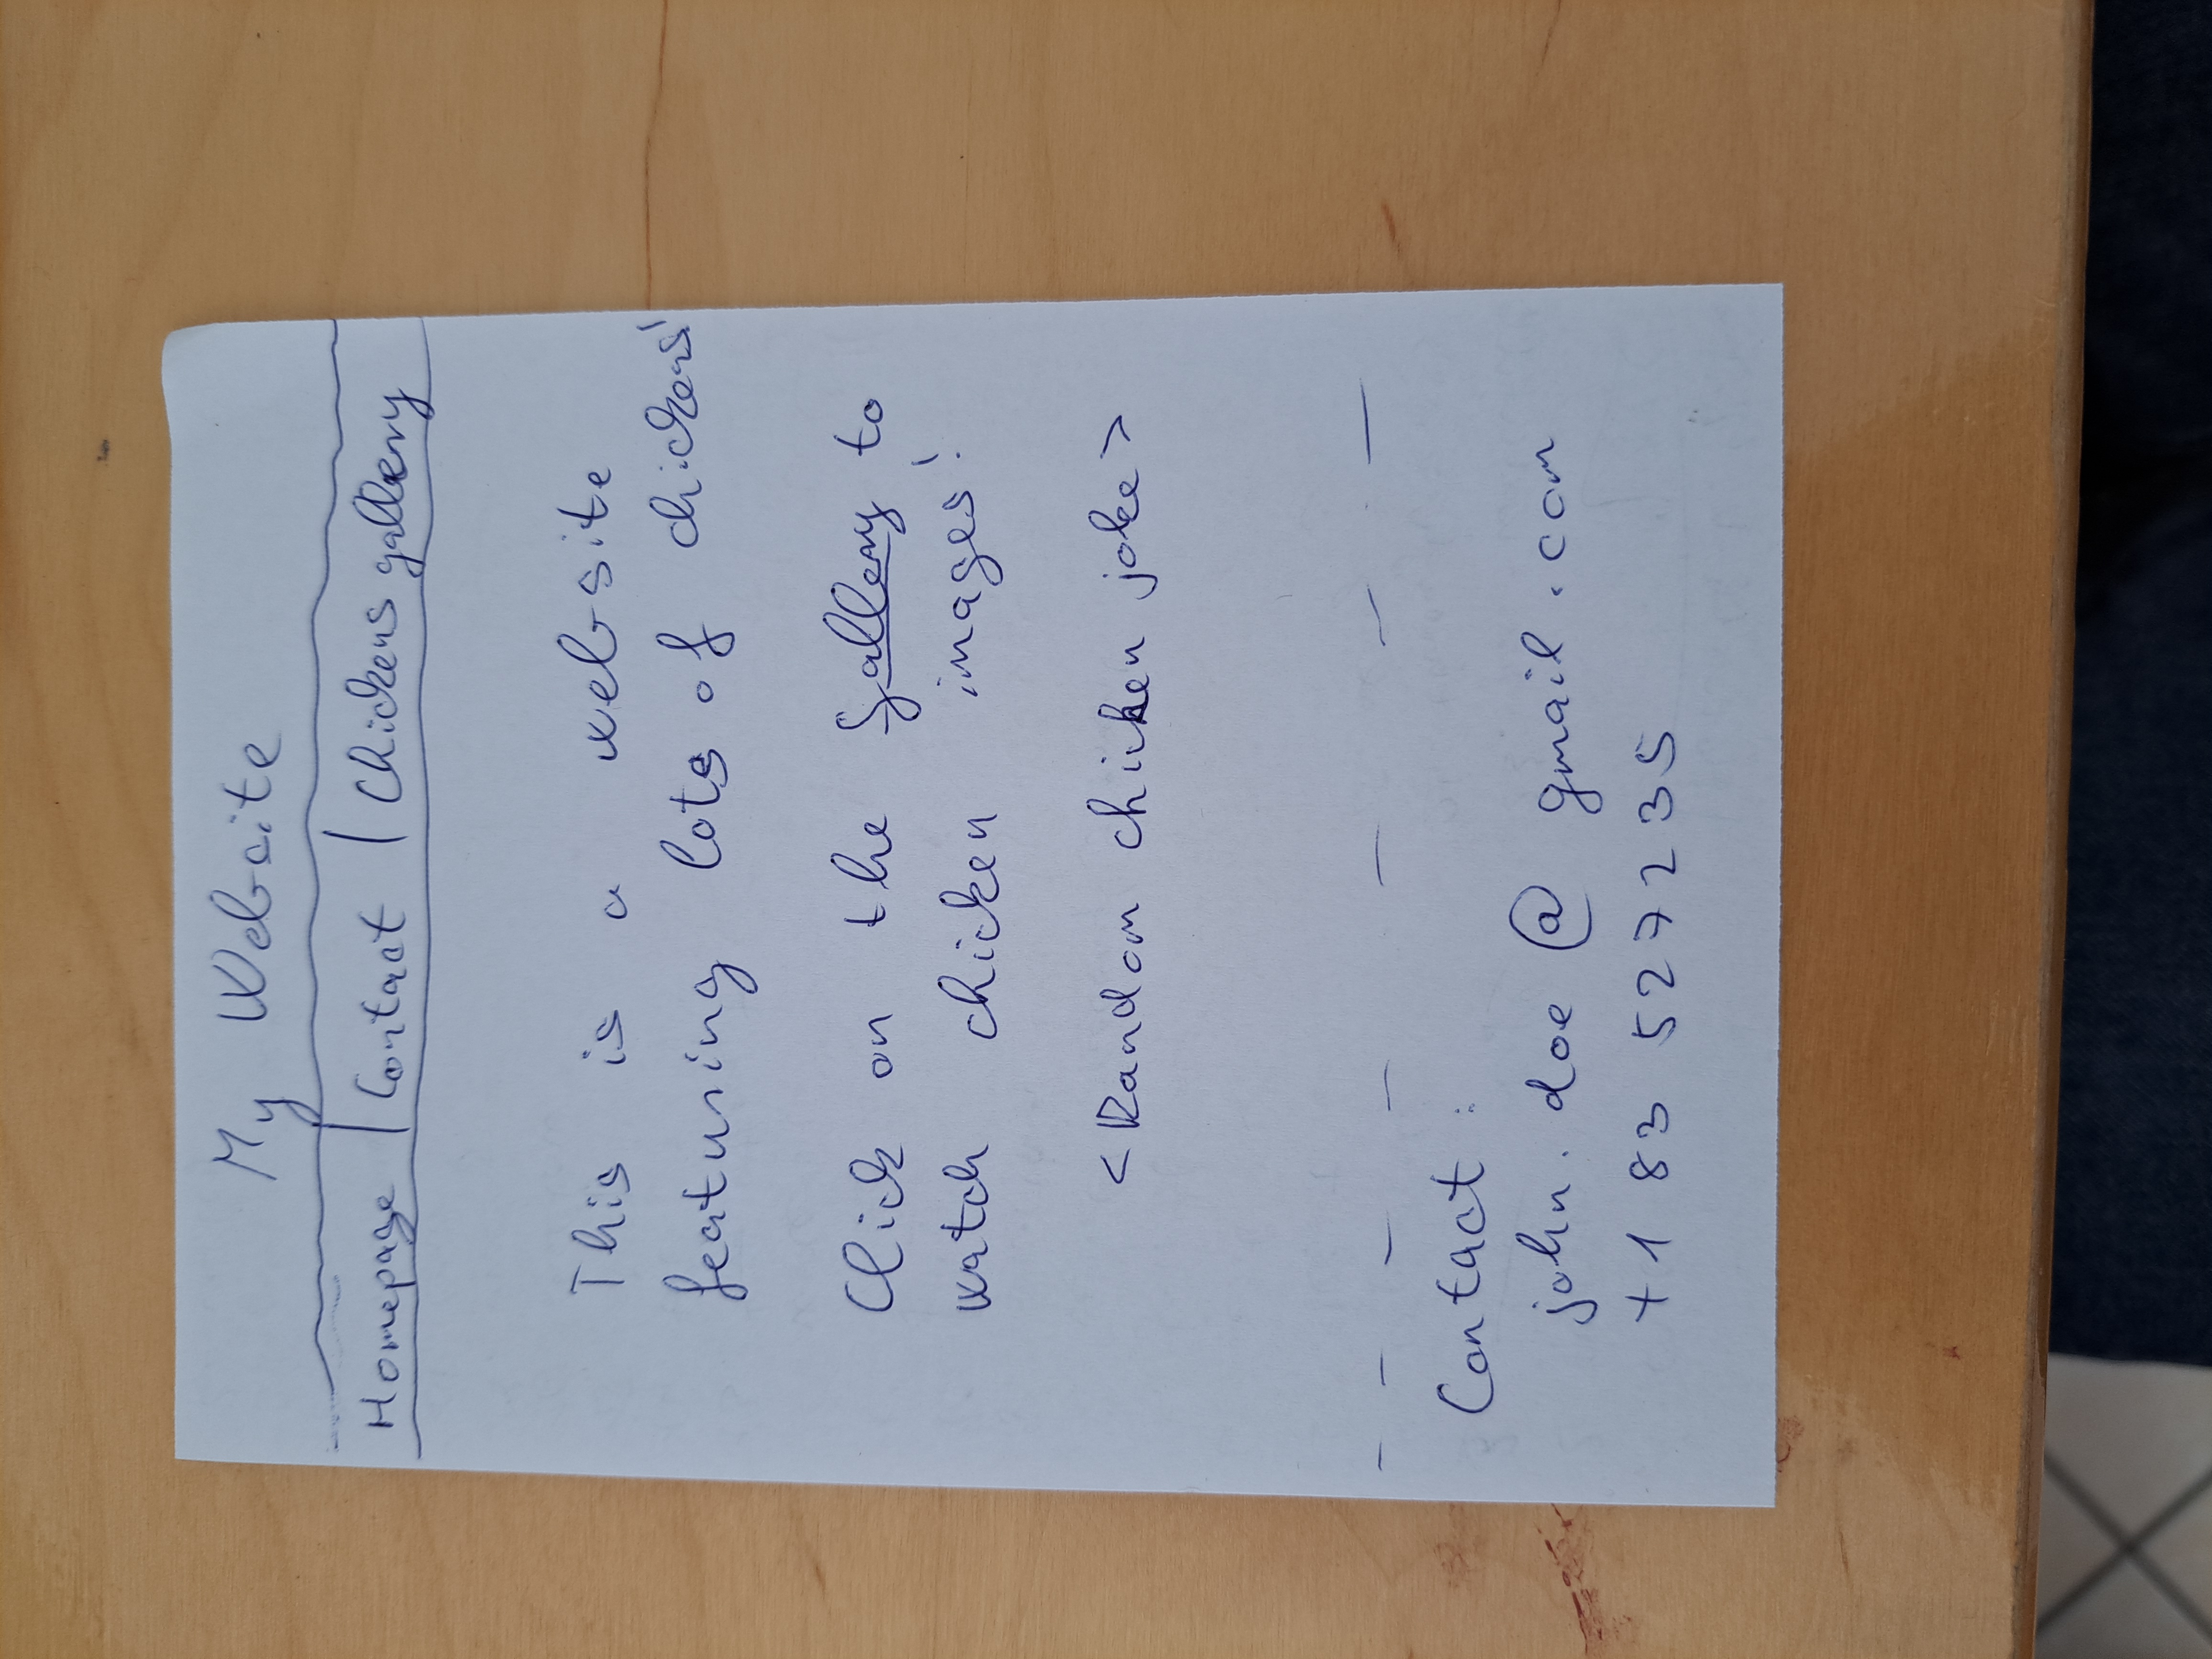 My Website
Homepage | Contact | Chickens gallery
This is a website
featuring lots of chickens!
Click on the gallery to
watch chicken images!
<Random chicken joke>
Contact :
john.doe@gmail.com
+1 83 527235